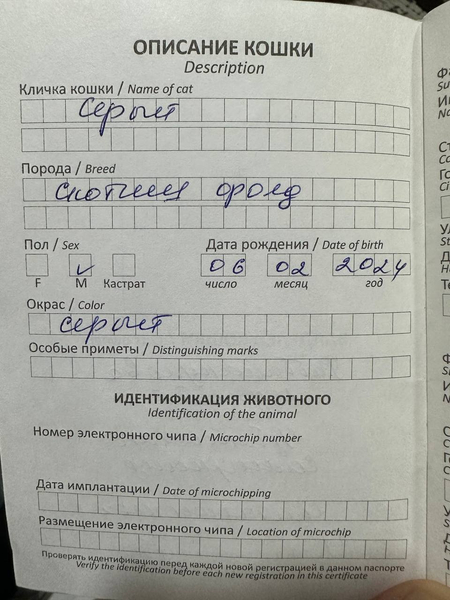 ОПИСАНИЕ КОШКИ
Description
Кличка кошки / Name of cat
серый
Порода / Breed
скотиш фолд
Пол / Sex
Дата рождения / Date of birth
06 02 2024
F M Кастрат число месяц год
Окрас / Color
серый
Особые приметы / Distinguishing marks
ИДЕНТИФИКАЦИЯ ЖИВОТНОГО
Identification of the animal
Номер электронного чипа / Microchip number
Дата имплантации / Date of microchipping
Размещение электронного чипа / Location of microchip
Проверять идентификацию перед каждой новой регистрацией в данном паспорте
Verify the identification before each new registration in this certificate